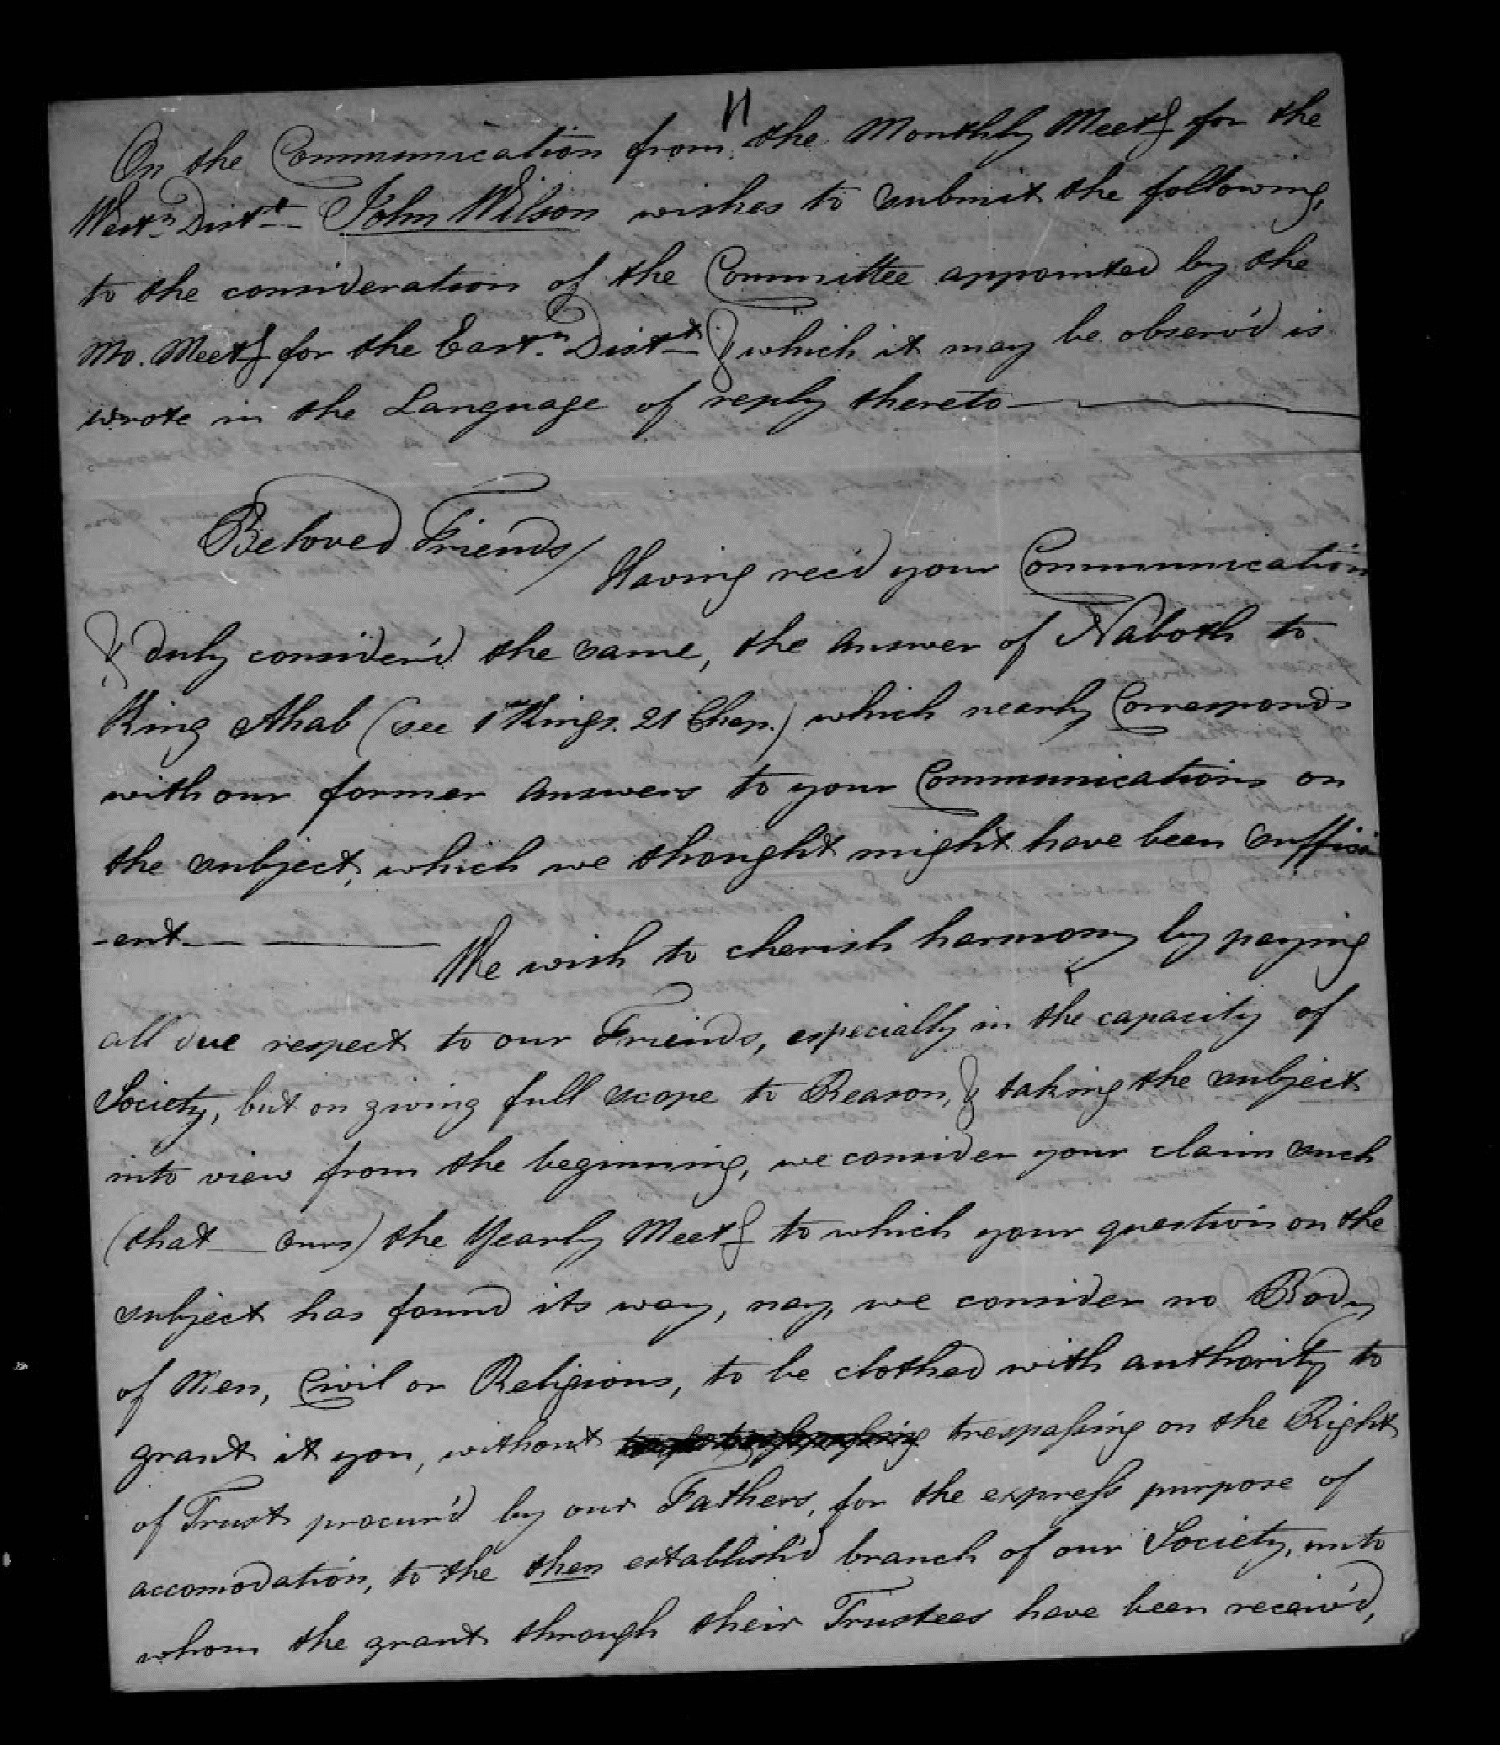 11
On the Communication from the Monthly Meetg for the
Westn Distt John Wilson wishes to submit the following,
to the consideration of the Committee appointed by the
Mo. Meetg for the Eastn Distt & which it may be observ'd is
wrote in the Language of reply thereto
Beloved Friends/ Having rec'd your Communication
& duly consider'd the same, the answer of Naboth to
King Ahab (see 1st Kings. 21 Chap.) which nearly Corresponds
with our former answers to your Communications on
the subject, which we thought might have been suffici
-ent We wish to cherish harmony by paying
all due respect to our Friends, especially in the capacity of
Society, but on giving full scope to Reason, & taking the subject
into view from the beginning, we consider your claim such
(that ours) the Yearly Meetg to which your question on the
subject has found its way, nay, we consider no Body
of Men, Civil or Religious, to be clothed with authority to
grant it you, without trespassing on the Right
of Trust procur'd by our Fathers, for the express purpose of
accomodation, to the then establish'd branch of our Society, unto
whom the grant through their Trustees have been receiv'd,